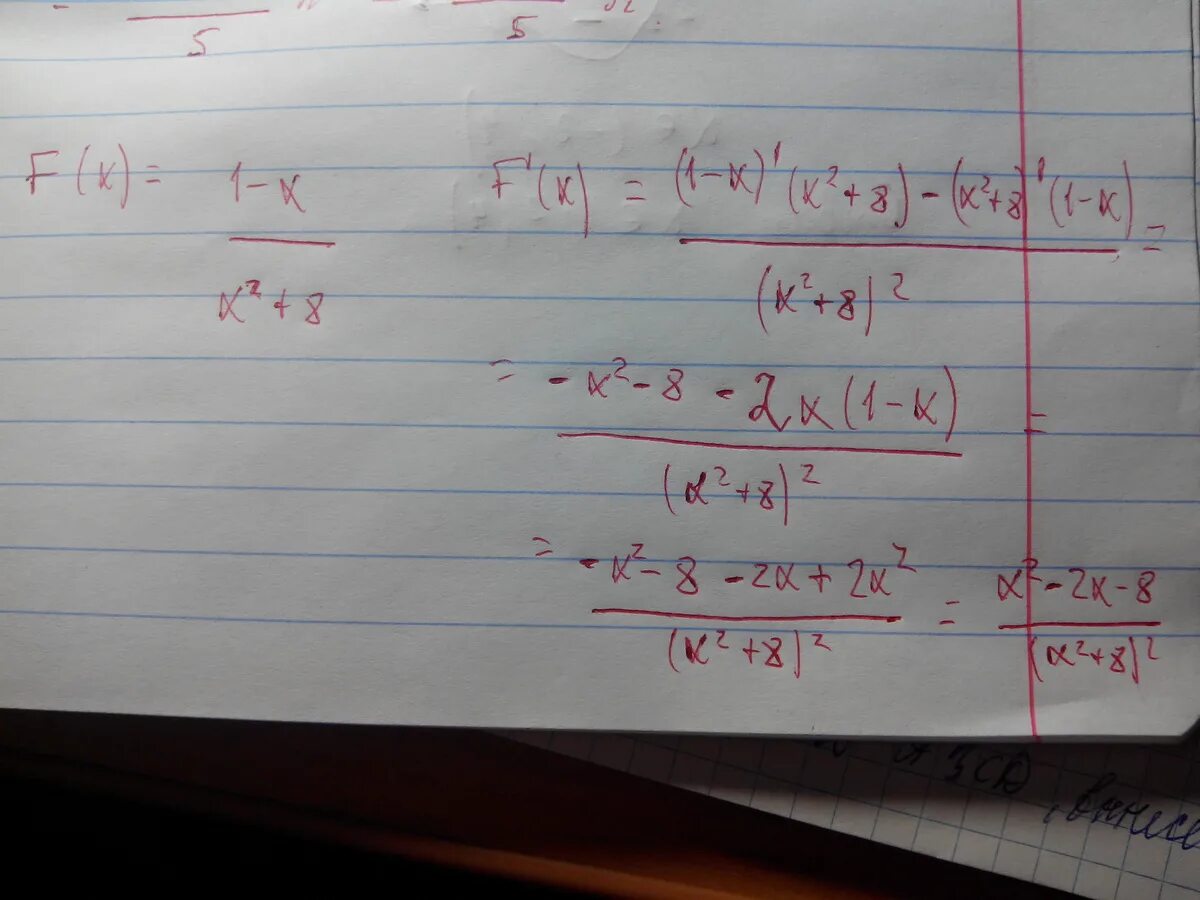 5 5
F(x) = (1-x)/(x²+8) F'(x) = ((1-x)'(x²+8) - (x²+8)'(1-x))/(x²+8)² =
= (-x²-8-2x(1-x))/(x²+8)² =
= (-x²-8-2x+2x²)/(x²+8)² = (x²-2x-8)/(x²+8)²